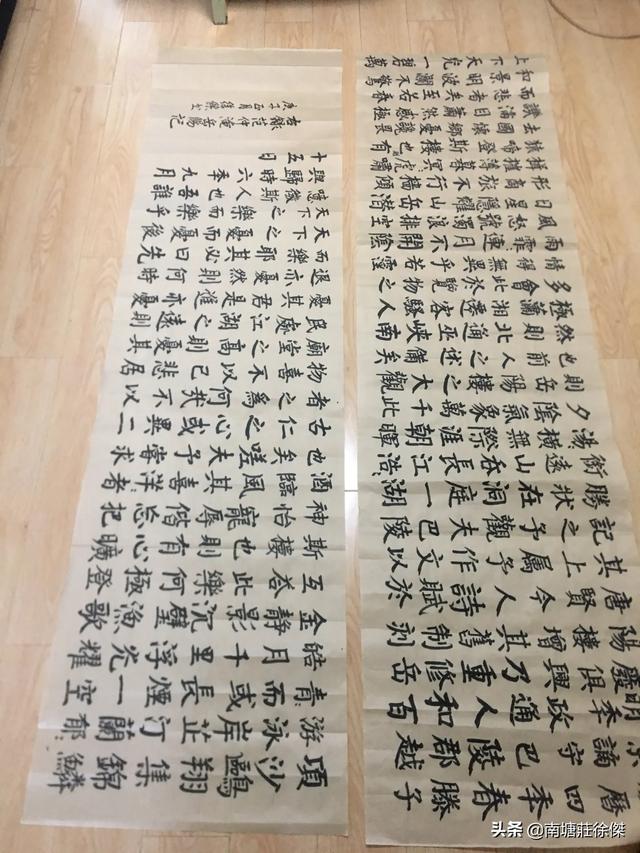 慶曆四季春滕子
京謫守巴陵郡越
明季政通人和百
廢俱興乃重修岳
陽樓增其舊制刻
唐賢今人詩賦於
其上属予作文以
記之予觀夫巴陵
勝狀在洞庭一湖
銜遠山吞長江浩
湯橫無際涯朝暉
夕陰氣象萬千此
則岳陽樓之大觀
也前人之述備矣
然則北通巫峽南
極瀟湘遷客騷人
多會於此覽物之
情得無異乎若霪
雨霏連月不開陰
風怒號濁浪排空
日星隱耀山岳潛
形商旅不行檣傾
摧薄暮冥虎嘯
登斯樓也有
去國懷鄉憂讒畏
譏滿目蕭然感極
而悲者矣至若春
和景明波瀾不驚
上下天光一碧萬
頃沙鷗翔集錦鱗
游泳岸芷汀蘭郁
青而或長煙一空
皓月千里浮光耀
金靜影沉璧漁歌
互答此樂何極登
斯樓也則有心曠
神怡寵辱偕忘把
酒臨風其喜洋者
也矣嗟夫予嘗求
古仁之心或異二
者之為何哉不以
物喜不以己悲居
廟堂之高則憂其
民處江湖之遠則
憂其君是進亦憂
退亦憂然則何時
而樂耶其必曰先
天下之憂而憂後
天下之樂而樂乎
噫微斯人也吾誰
與歸時六季九月
十五日
右錄范仲淹岳陽記
庚子正月徐傑書
头条 @南塘莊徐傑